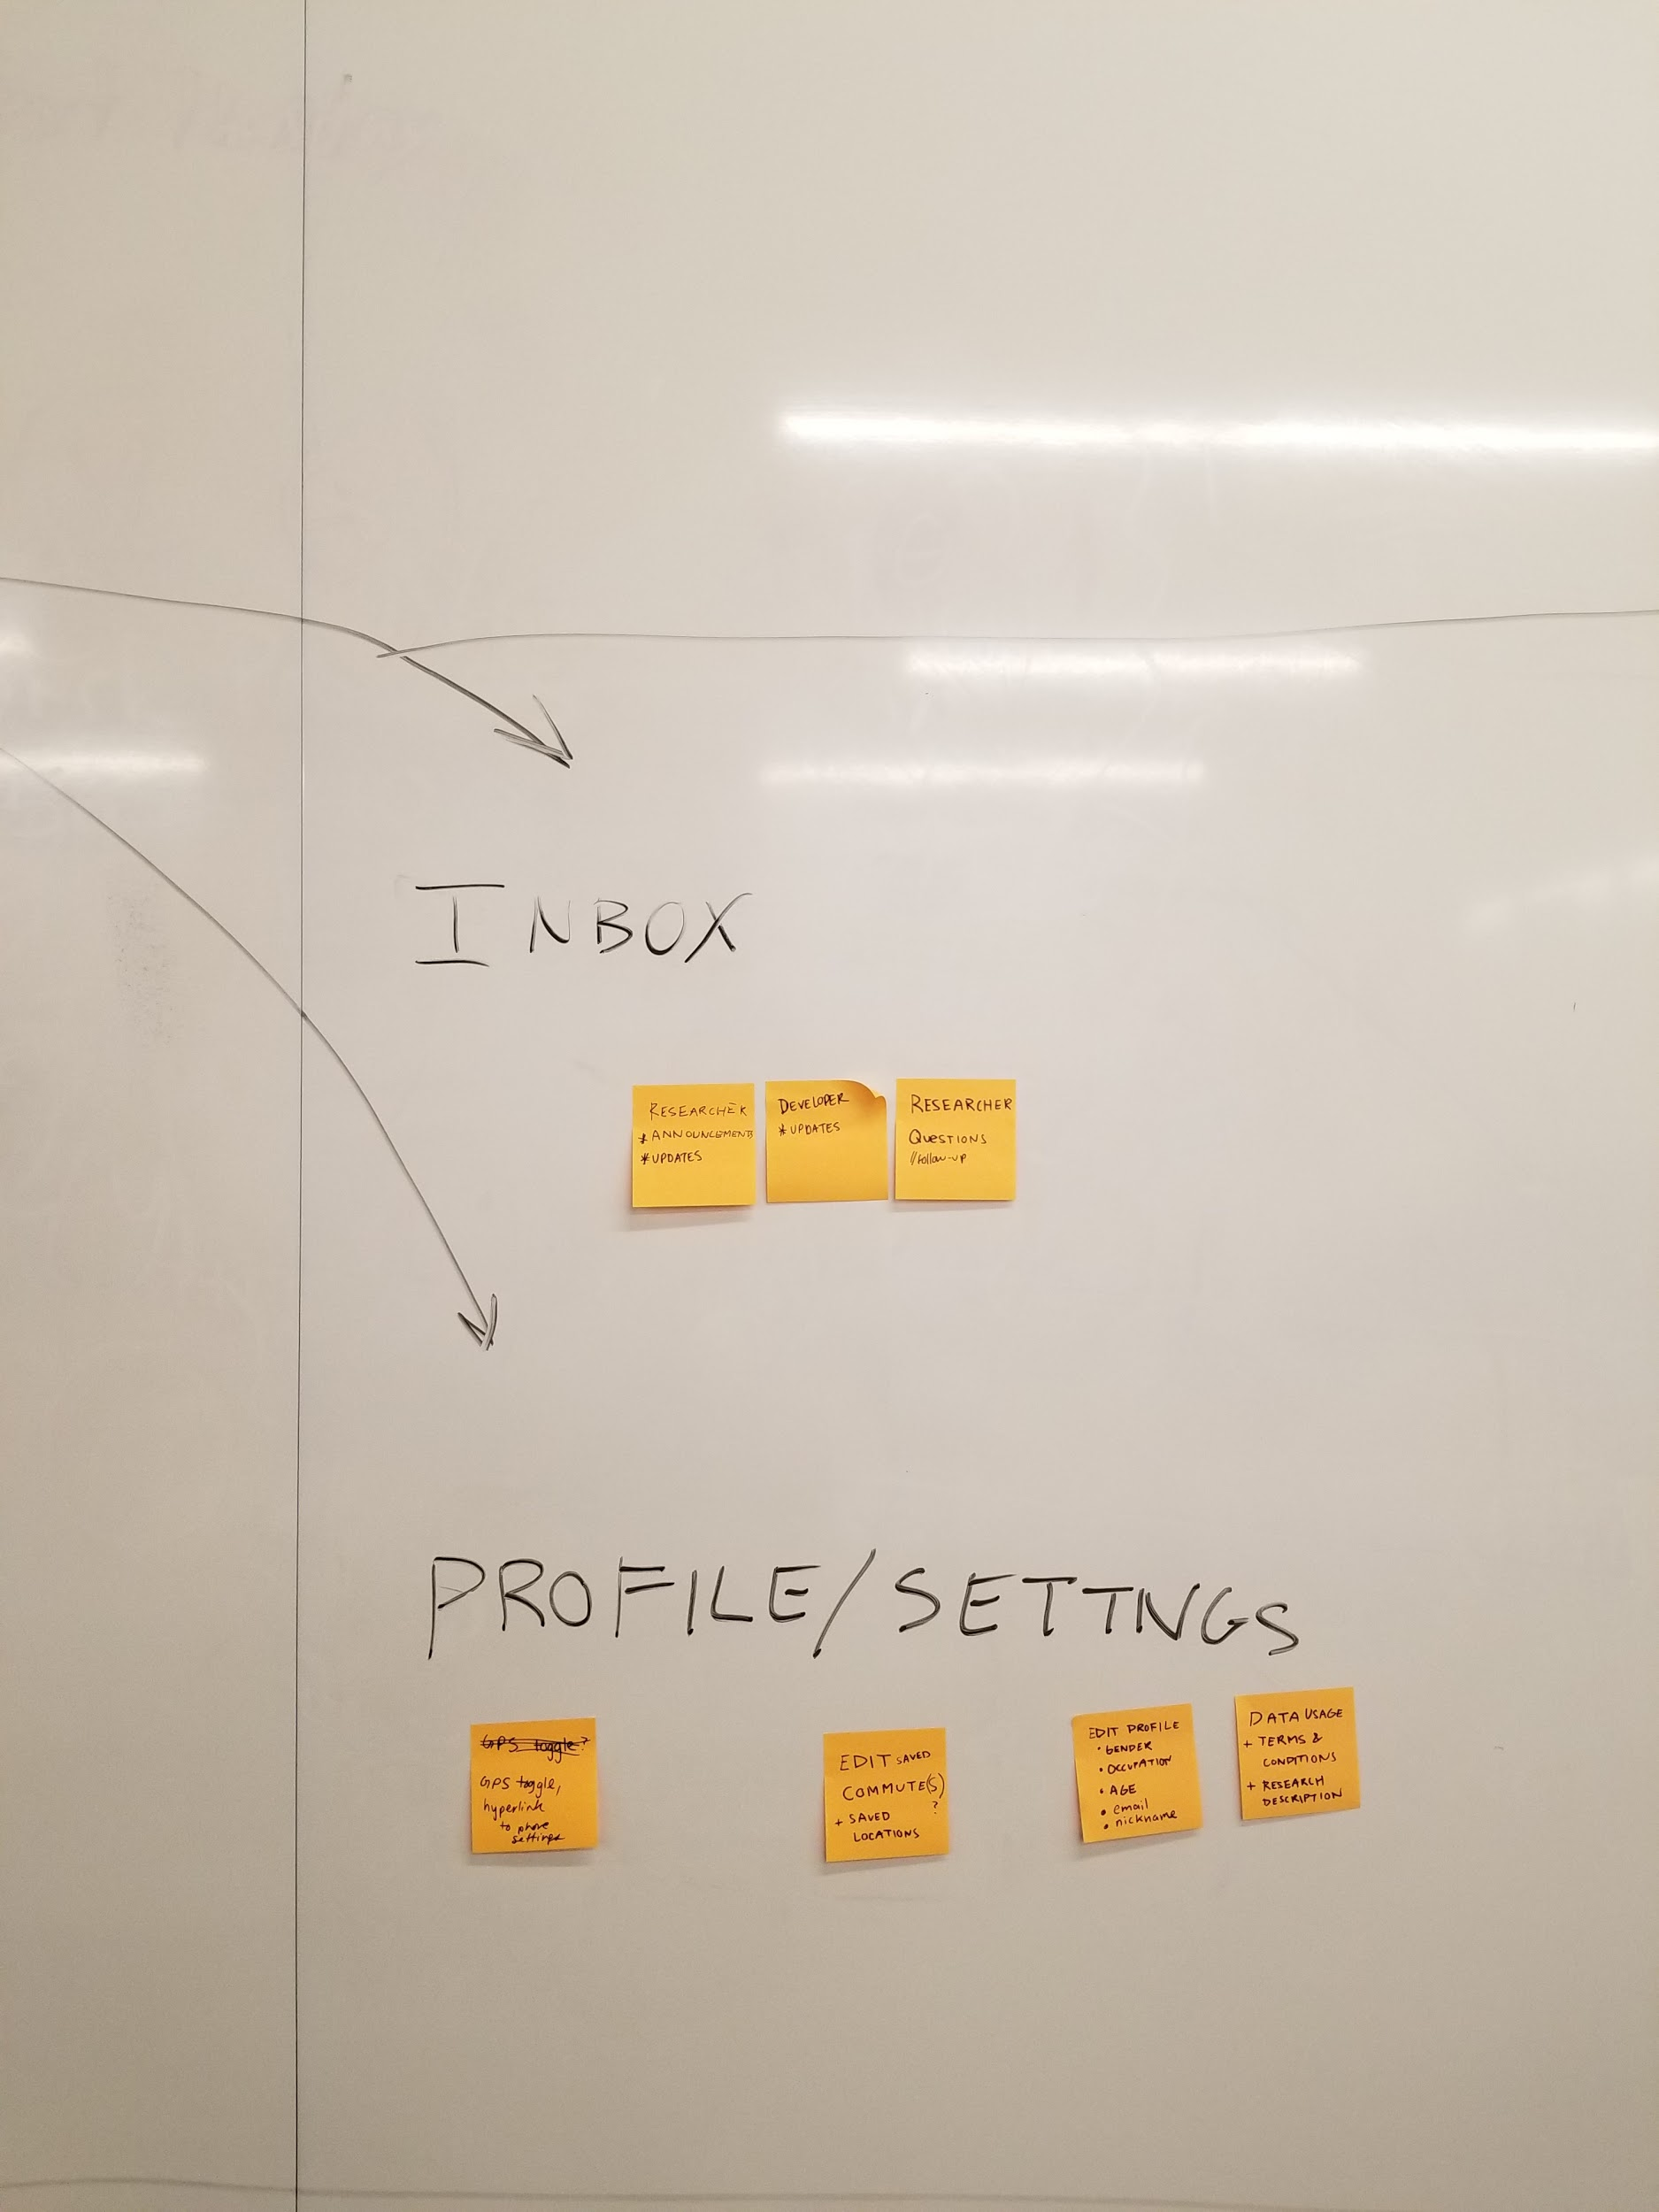 INBOX
RESEARCHER
* ANNOUNCEMENTS
* UPDATES
DEVELOPER
* UPDATES
RESEARCHER
QUESTIONS
//follow-up
PROFILE/SETTINGS
GPS toggle?
GPS toggle,
hyperlink
to phone
settings
EDIT SAVED
COMMUTE(S)
?
+ SAVED
LOCATIONS
EDIT PROFILE
• GENDER
• OCCUPATION
• AGE
• email
• nickname
DATA USAGE
+ TERMS &
CONDITIONS
+ RESEARCH
DESCRIPTION